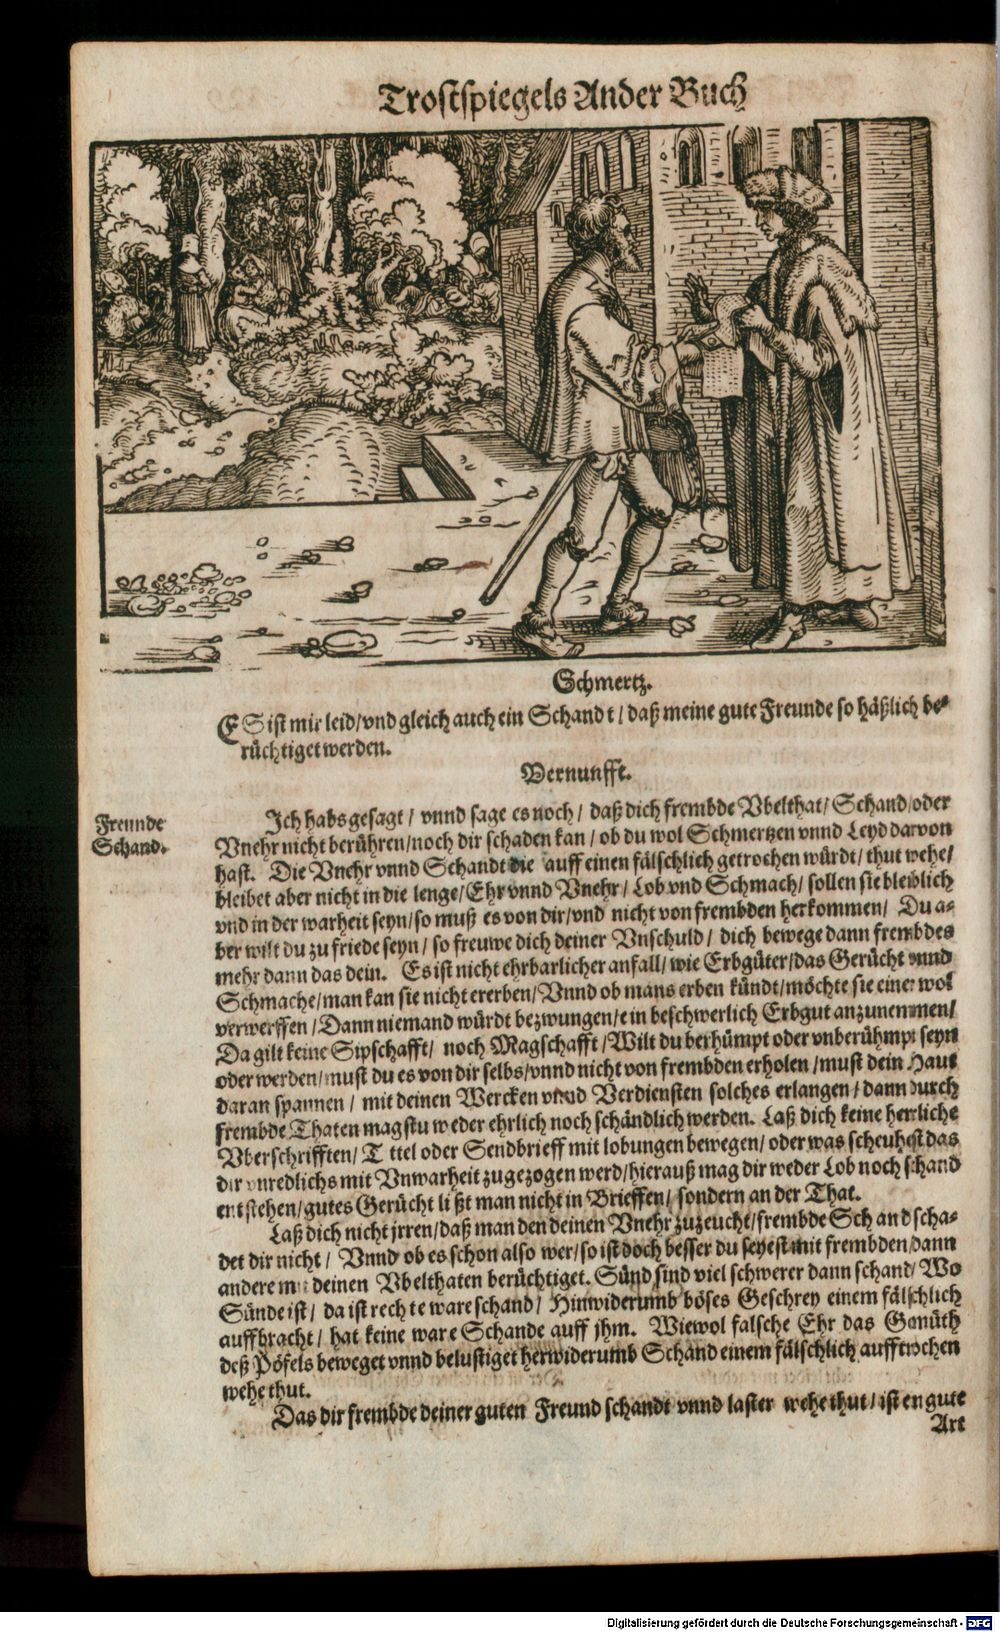 Trostspiegels Ander Buch
Schmertz.
ES ist mir leid/vnd gleich auch ein Schandt/daß meine gute Freunde so häßlich be-
rüchtiget werden.
Vernunfft.
Freunde
Schand.
Ich habs gesagt/ vnnd sage es noch/ daß dich frembde Vbelthat/ Schand/oder
Vnehr nicht berühren/noch dir schaden kan/ ob du wol Schmertzen vnnd Leyd darvon
hast. Die Vnehr vnnd Schandt die auff einen fälschlich getrochen würdt/ thut wehe/
bleibet aber nicht in die lenge/Ehr vnnd Vnehr/ Lob vnd Schmach/ sollen sie bleiblich
vnd in der warheit seyn/so muß es von dir/vnd nicht von frembden herkommen/ Du a-
ber wilt du zu friede seyn/ so freuwe dich deiner Vnschuld/ dich bewege dann frembdes
mehr dann das dein. Es ist nicht ehrbarlicher anfall/ wie Erbgüter/das Gerücht vnnd
Schmache/man kan sie nicht ererben/Vnnd ob mans erben kündt/möchte sie einer wol
verwerffen/Dann niemand würdt bezwungen/ein beschwerlich Erbgut anzunemmen/
Da gilt keine Sipschafft/ noch Magschafft/Wilt du berhümpt oder vnberühmpt seyn
oder werden/must du es von dir selbs/vnnd nicht von frembden erholen/must dein Haut
daran spannen/ mit deinen Wercken vnnd Verdiensten solches erlangen/ dann durch
frembde Thaten magstu weder ehrlich noch schändlich werden. Laß dich keine herrliche
Vberschrifften/ T ttel oder Sendbrieff mit lobungen bewegen/ oder was scheuhest das
dir vnredlichs mit Vnwarheit zugezogen werd/hierauß mag dir weder Lob noch schand
entstehen/gutes Gerücht li ßt man nicht in Brieffen/ sondern an der That.
Laß dich nicht jrren/daß man den deinen Vnehr zuzeucht/frembde Schand scha-
det dir nicht/ Vnnd ob es schon also wer/so ist doch besser du seyest mit frembden/dann
andere mit deinen Vbelthaten berüchtiget. Sünd sind viel schwerer dann schand/ Wo
Sünde ist/ da ist rechte ware schand/ Hinwiderumb böses Geschrey einem fälschlich
auffbracht/ hat keine ware Schande auff jhm. Wiewol falsche Ehr das Gemüth
deß Pöfels beweget vnnd belustiget herwiderumb Schand einem fälschlich aufftrochen
wehe thut.
Das dir frembde deiner guten Freund schandt vnnd laster wehe thut/ ist en gute
Art
Digitalisierung gefördert durch die Deutsche Forschungsgemeinschaft - DFG